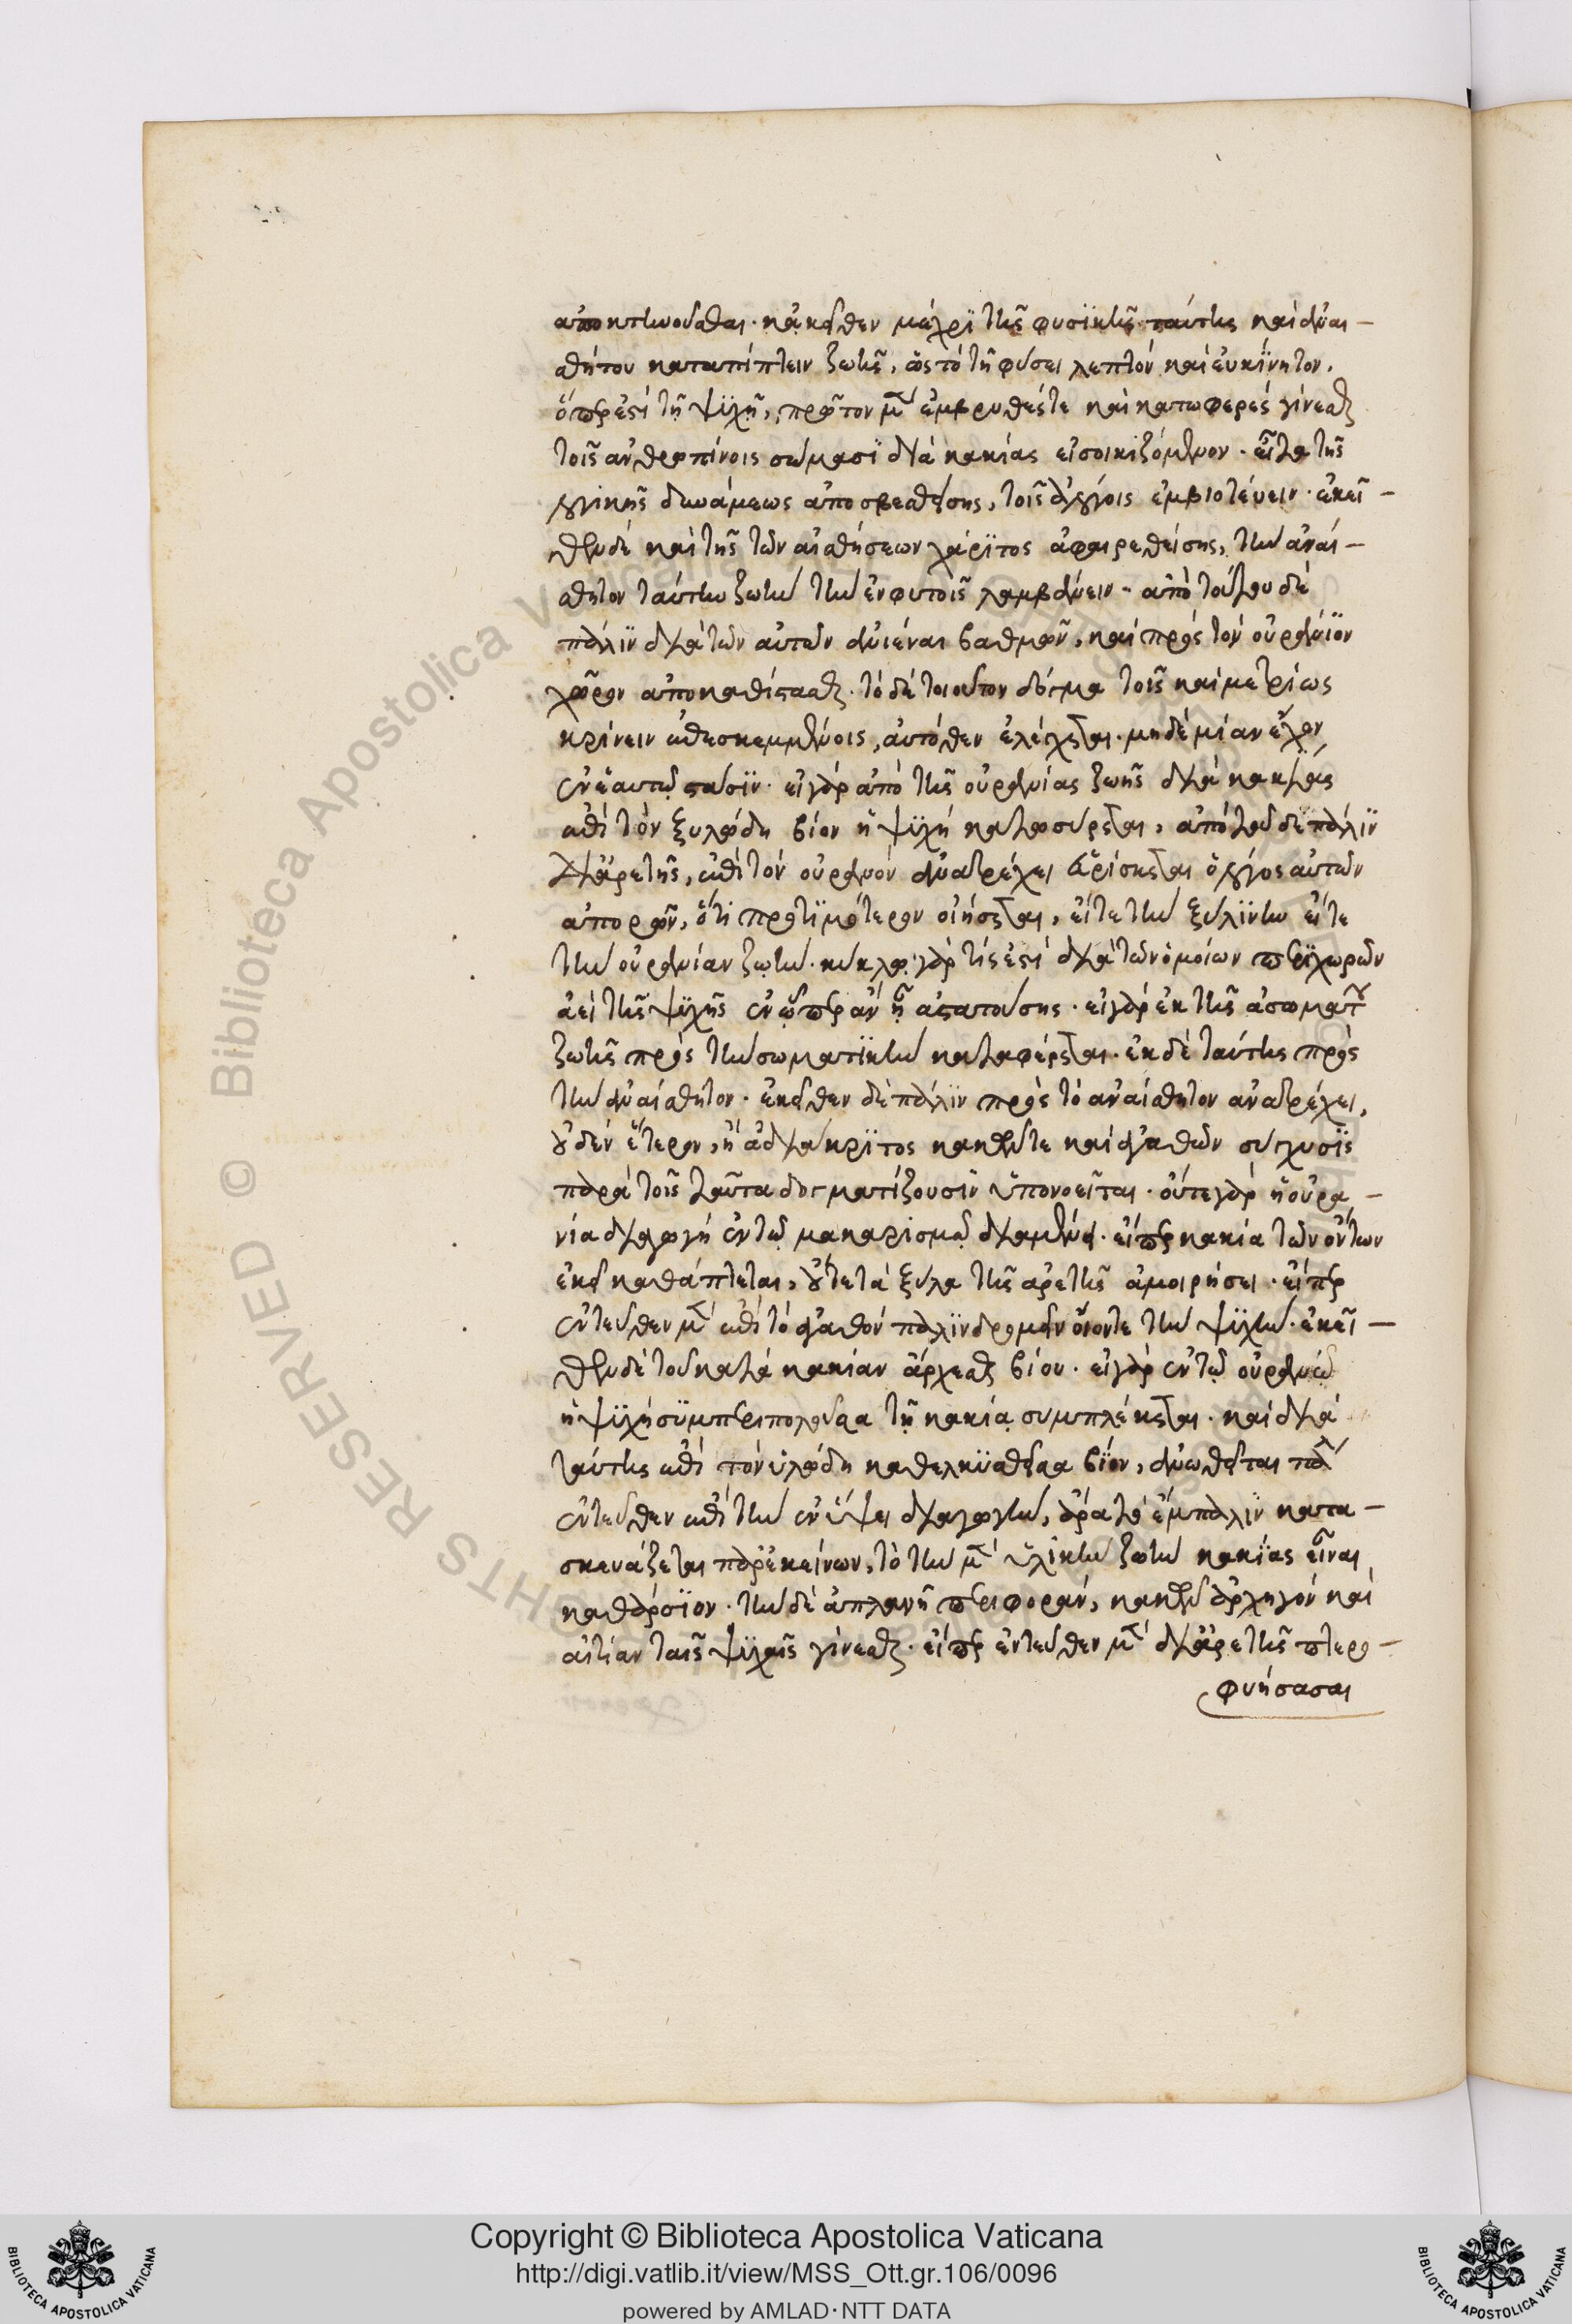 ἀποκτηνοῦσθαι· κἀκεῖθεν μέχρι τῆς φυσικῆς ταύτης καὶ ἀναι-
σθήτου καταπίπτειν ζωῆς, ὡς τὸ τῇ φύσει λεπτόν καὶ εὐκίνητον,
ὅπέρ ἐστι τῇ ψυχῇ, πρῶτον μὲν ἐμβριθές τε καὶ κατωφερές γίνεσθαι
τοῖς ἀνθρωπίνοις σώμασι διὰ κακίας εἰσοικιζόμενον· εἶτα τῆς
λογικῆς δυνάμεως ἀποσβεσθείσης, τοῖς ἀλόγοις ἐμβιοτεύειν· ἐκεῖ-
θεν δὲ καὶ τῆς τῶν αἰσθήσεων χάριτος ἀφαιρεθείσης, τὴν ἀναί-
σθητον ταύτην ζωὴν τὴν ἐν φυτοῖς λαμβάνειν· ἀπὸ τούτου δὲ
πάλιν διὰ τῶν αὐτῶν ἀνιέναι βαθμῶν, καὶ πρὸς τὸν οὐράνιον
χῶρον ἀποκαθίστασθαι. τὸ δὲ τοιοῦτον δόγμα τοῖς καὶ μετρίως
κρίνειν ἐπεσκεμμένοις, αὐτόθεν ἐλέγχεται· μηδὲ μίαν ἔχον
ἐν ἑαυτῷ στάσιν· εἰ γὰρ ἀπὸ τῆς οὐρανίας ζωῆς διὰ κακίας
ἐπὶ τὸν ξυλώδη βίον ἡ ψυχὴ κατασύρεται, ἀπὸ τοῦ δὲ πάλιν
δι' ἀρετῆς, ἐπὶ τὸν οὐρανὸν ἀνατρέχει εὑρίσκεται ὁ λόγος αὐτῶν
ἀπορῶν, ὅτι προτιμότερον οἰήσεται, εἴτε τὴν ξυλίνην εἴτε
τὴν οὐρανίαν ζωήν· κύκλος γάρ τίς ἐστι διὰ τῶν ὁμοίων περιχωρῶν
ἀεὶ τῆς ψυχῆς ἐν ᾧπερ ἂν ᾖ ἀστατούσης· εἰ γὰρ ἐκ τῆς ἀσωμάτου
ζωῆς πρὸς τὴν σωματικὴν καταφέρεται· ἐκ δὲ ταύτης πρὸς
τὴν ἀναίσθητον· ἐκεῖθεν δὲ πάλιν πρὸς τὸ ἀναίσθητον ἀνατρέχει,
οὐδὲν ἕτερον, ἢ ἀδιάκριτος κακῶν τε καὶ ἀγαθῶν σύγχυσις
παρὰ τοῖς ταῦτα δογματίζουσιν ὑπονοεῖται· οὔτε γὰρ ἡ οὐρα-
νία διαγωγὴ ἐν τῷ μακαρισμῷ διαμένει· εἴπερ κακία τῶν ὄντων
ἐκεῖ καθάπτεται, οὔτε τὰ ξύλα τῆς ἀρετῆς ἀμοιρήσει· εἴπερ
ἐντεῦθεν μὲν ἐπὶ τὸ ἀγαθὸν παλινδρομεῖν οἴονται τὴν ψυχήν· ἐκεῖ-
θεν δὲ τοῦ κατὰ κακίαν ἄρχεσθαι βίου· εἰ γὰρ ἐν τῷ οὐρανῷ
ἡ ψυχὴ συμπεριπολοῦσα τῇ κακίᾳ συμπλέκεται· καὶ διὰ
ταύτης ἐπὶ τὸν ὑλώδη καθελκυσθεῖσα βίον, ἀνωθεῖται πάλιν
ἐντεῦθεν ἐπὶ τὴν ἐν ὕψει διαγωγήν, ἄρα τὸ ἔμπαλιν κατα-
σκευάζεται παρ' ἐκείνων, τὸ τὴν μὲν ὑλικὴν ζωὴν κακίας εἶναι
καθάρσιον· τὴν δὲ ἀπλανῆ περιφοράν, κακῶν ἀρχηγὸν καὶ
αἰτίαν ταῖς ψυχαῖς γίνεσθαι· εἴπερ ἐντεῦθεν μὲν δι' ἀρετῆς πτερο-
φυήσασαι
Copyright © Biblioteca Apostolica Vaticana
http://digi.vatlib.it/view/MSS_Ott.gr.106/0096
powered by AMLAD·NTT DATA